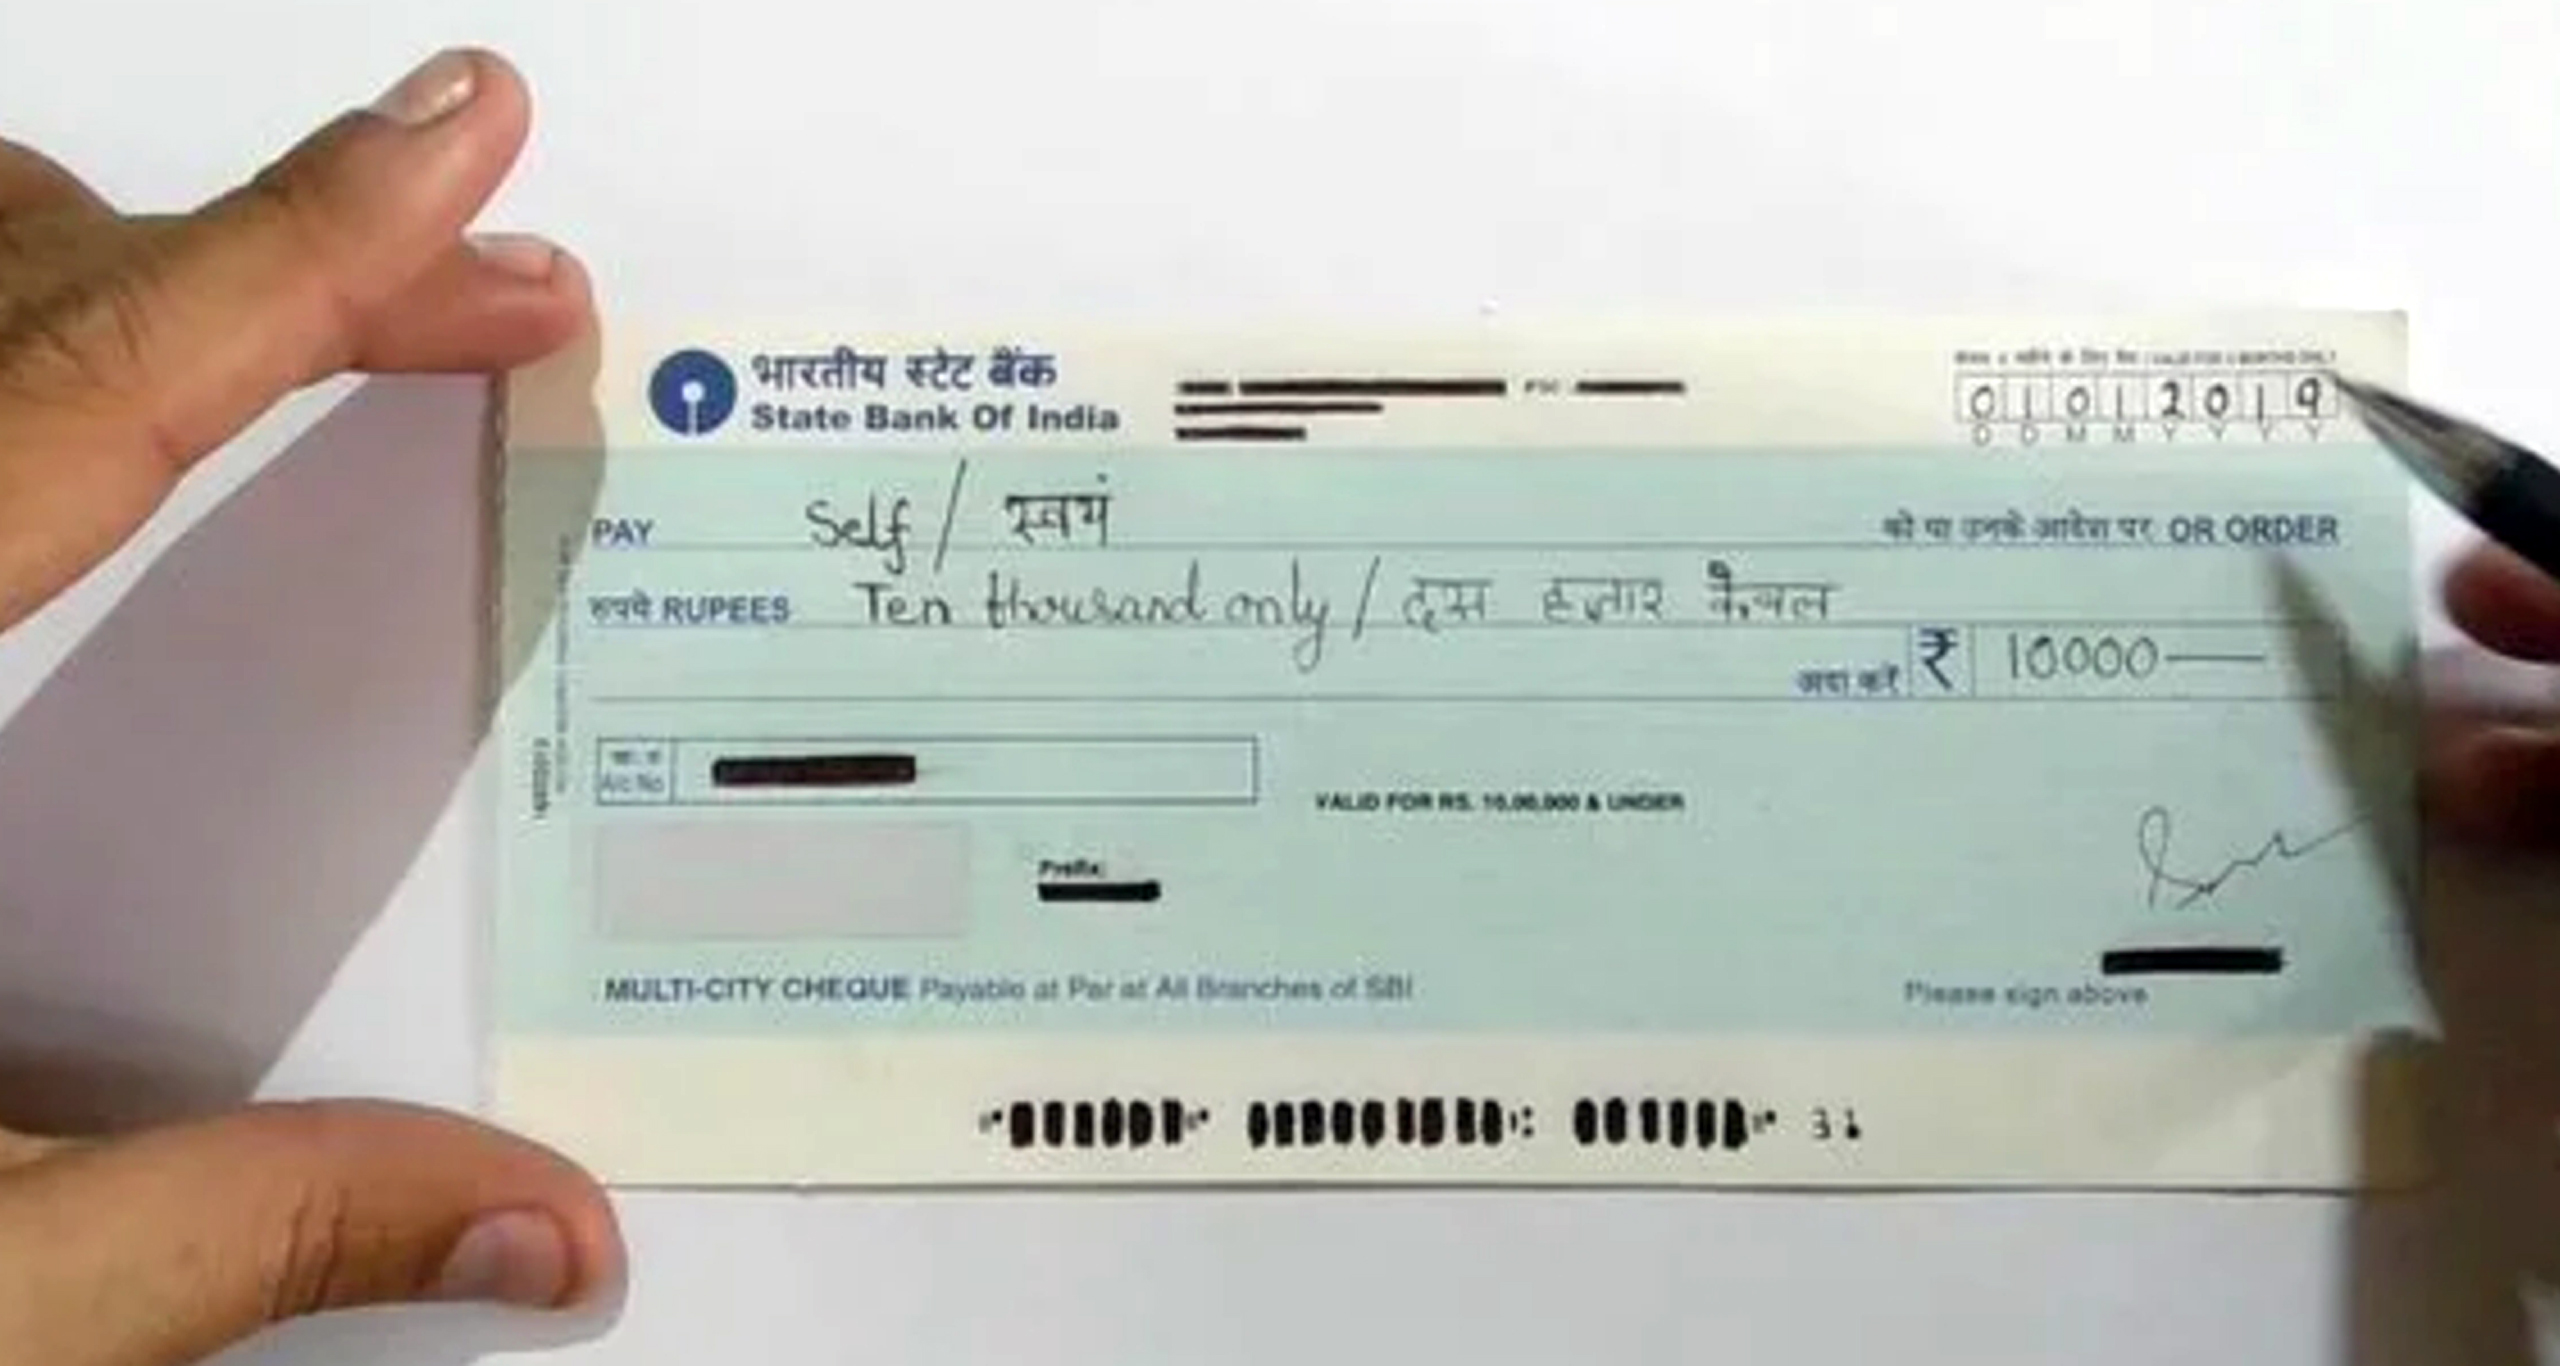 भारतीय स्टेट बैंक
State Bank Of India
01012019
D D M M Y Y Y Y
PAY Self / स्वयं को या उनके आदेश पर OR ORDER
रुपये RUPEES Ten thousand only / दस हजार केवल
अदा करें ₹ 10000
A/c No
VALID FOR RS. 10,00,000 & UNDER
Prefix:
MULTI-CITY CHEQUE Payable at Par at All Branches of SBI
Please sign above
31